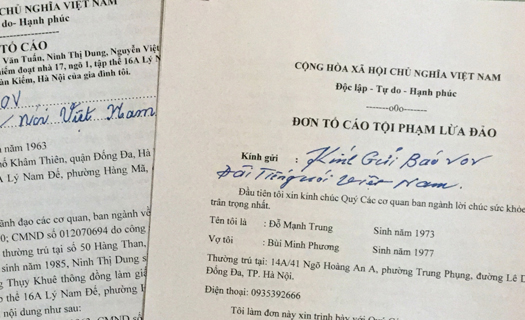 CHỦ NGHĨA VIỆT NAM
do- Hạnh phúc
TỐ CÁO
Văn Tuấn, Ninh Thị Dung, Nguyễn Việt
iếm đoạt nhà 17, ngõ 1, tập thể 16A Lý N
àn Kiếm, Hà Nội của gia đình tôi.
OV
Nói Việt Nam
năm 1963
ố Khâm Thiên, quận Đống Đa, Hà
A Lý Nam Đế, phường Hàng Mã,
ãnh đạo các cơ quan, ban ngành về
0; CMND số 012070694 do công
thường trú tại số 50 Hàng Than,
sinh năm 1985, Ninh Thị Dung s
g Thụy Khuê thông đồng làm giả
p thể 16A Lý Nam Đế, phường H
nội dung như sau:
CỘNG HÒA XÃ HỘI CHỦ NGHĨA VIỆT NAM
Độc lập - Tự do - Hạnh phúc
--------o0o--------
ĐƠN TỐ CÁO TỘI PHẠM LỪA ĐẢO
Kính gửi : Kính Gửi Báo VOV
Đài Tiếng nói Việt Nam.
Đầu tiên tôi xin kính chúc Quý Các cơ quan ban ngành lời chúc sức khỏe
trân trọng nhất.
Tên tôi là : Đỗ Mạnh Trung Sinh năm 1973
Vợ tôi : Bùi Minh Phương Sinh năm 1977
Thường trú tại: 14A/41 Ngõ Hoàng An A, phường Trung Phụng, đường Lê D
Đống Đa, TP. Hà Nội.
Điện thoại: 0935392666
Tôi làm đơn này xin trình bày với Quý